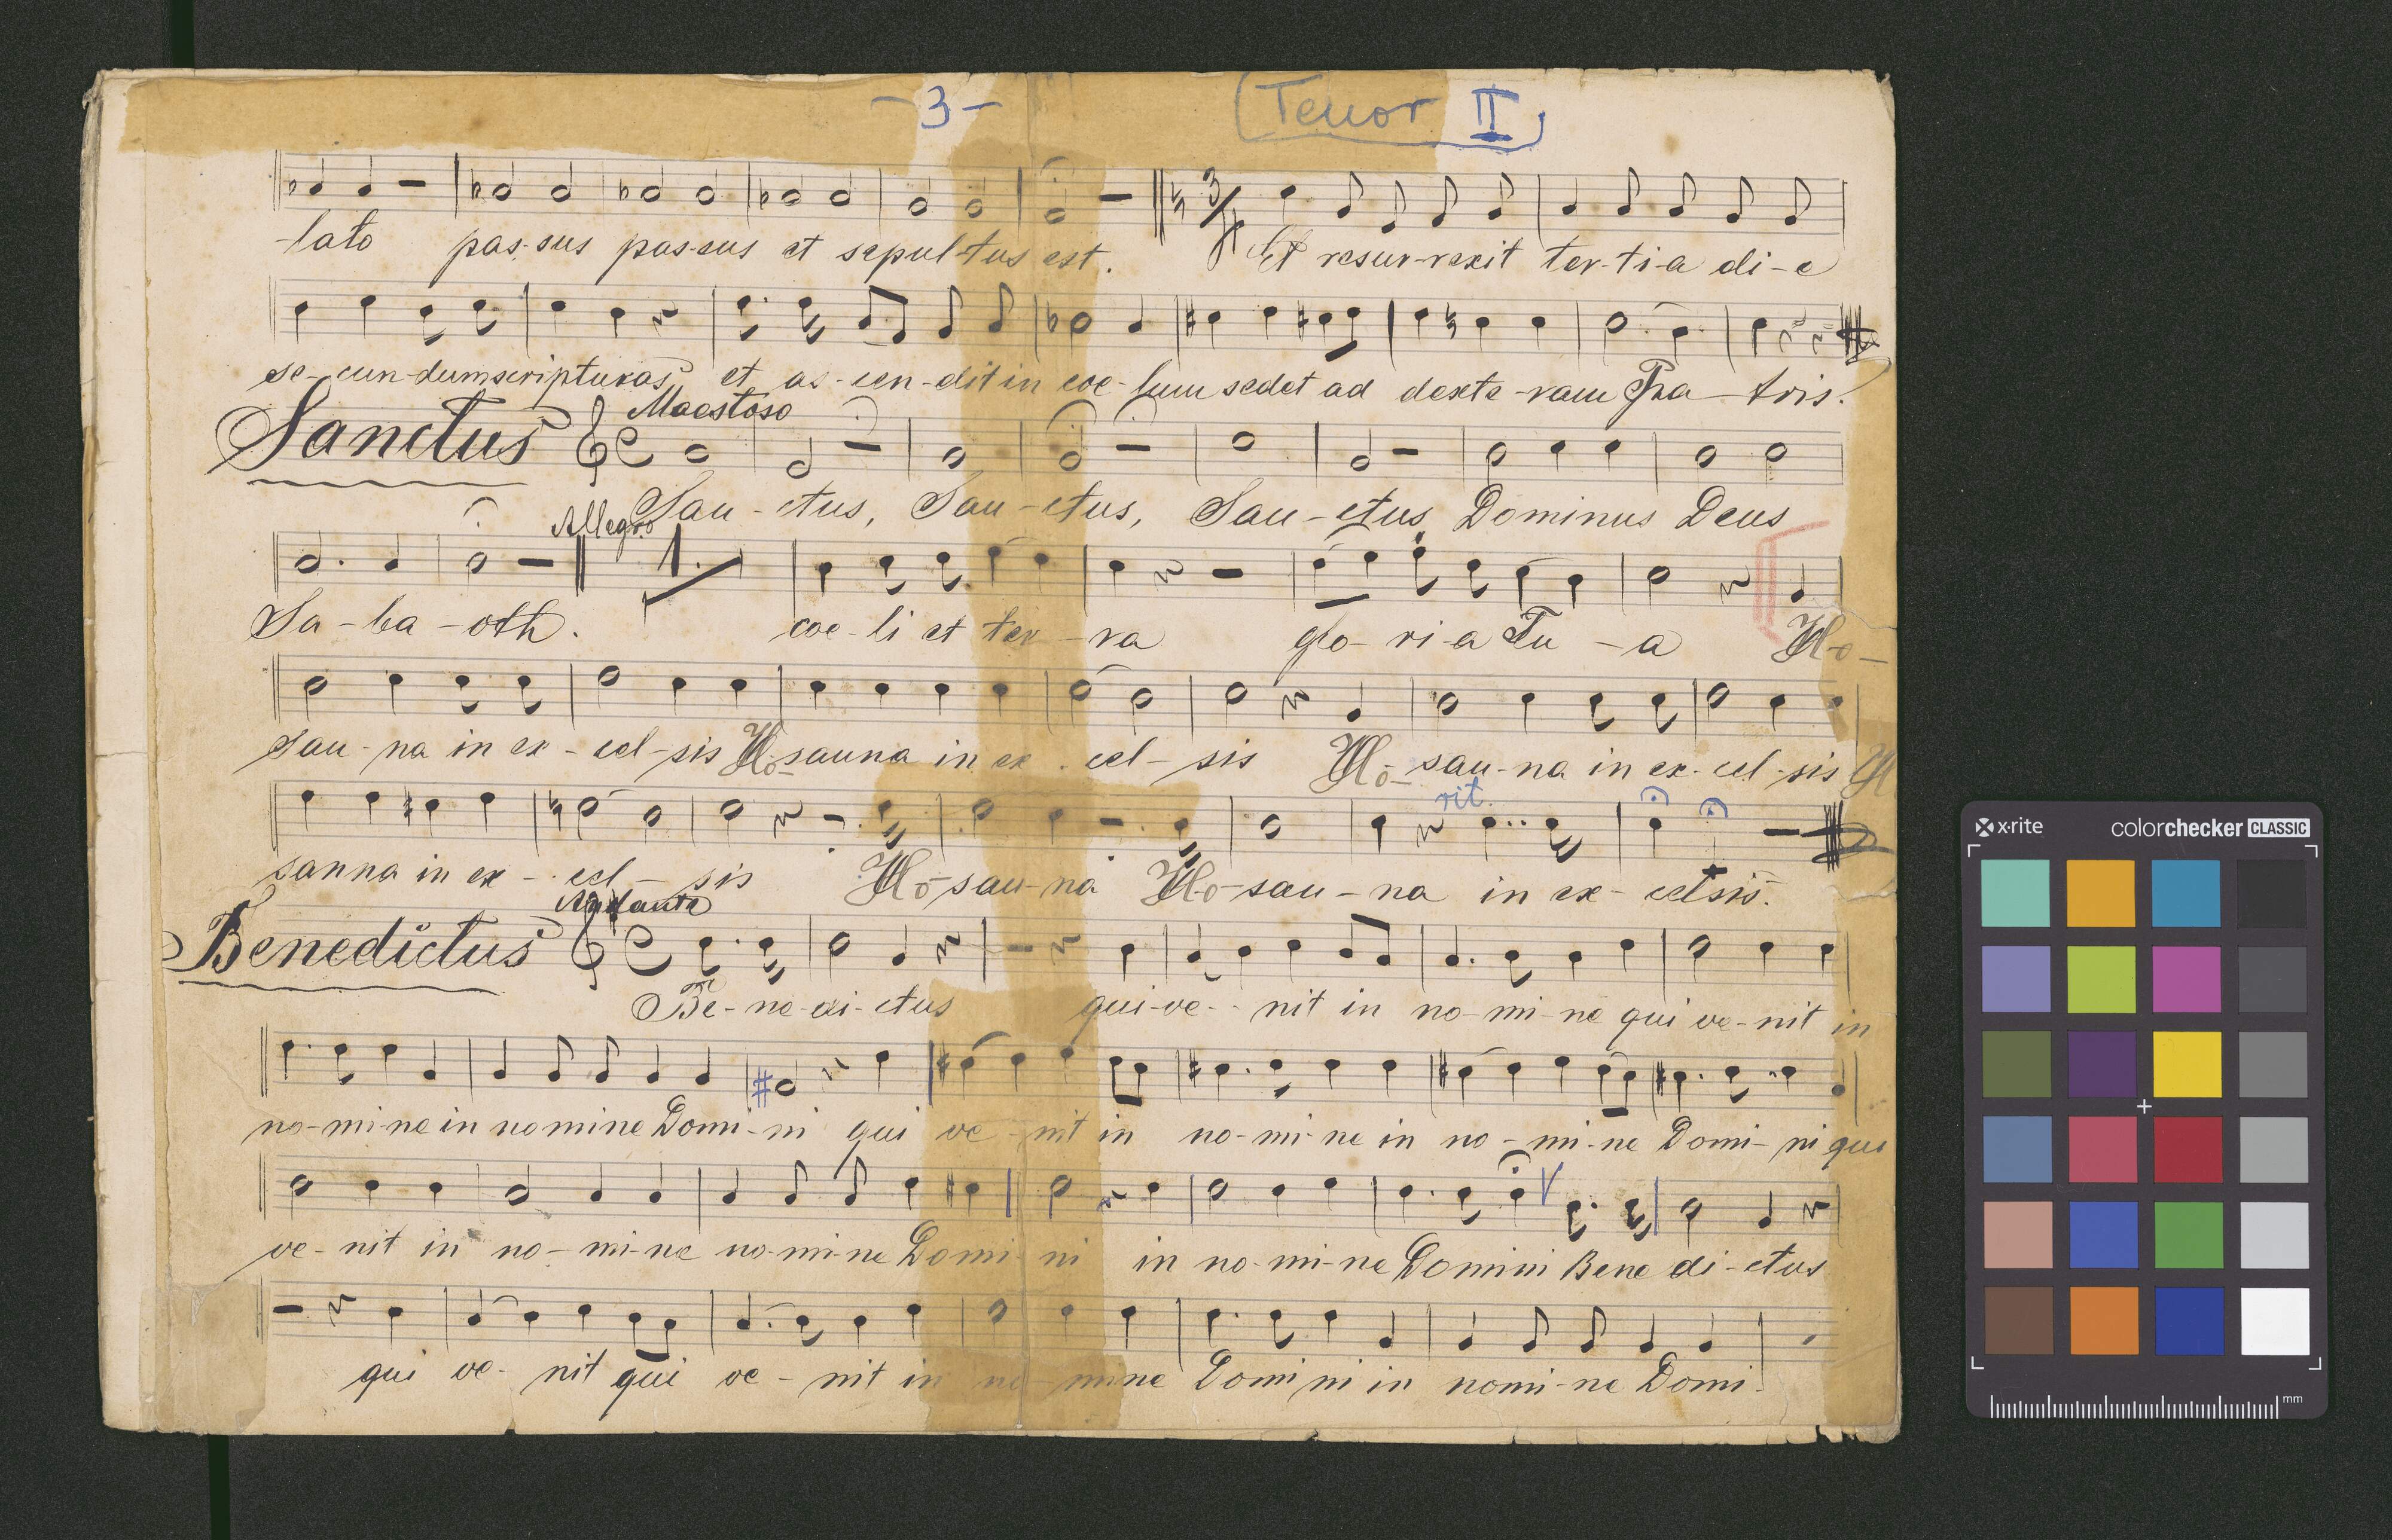 - 3 -
Tenor II
-lato pas-sus pas-sus et sepul-tus est. Et resur-rexit ter-ti-a di-e
se-cun-dum scripturas et as-cen-dit in coe-lum sedet ad dexte-ram Pa-tris.
Maestoso
Sanctus
San-ctus, San-ctus, San-ctus Dominus Deus
Allegro
1.
Sa-ba-oth. coe-li et ter-ra glo-ri-a Tu-a Ho-
san-na in ex-cel-sis Ho-sanna in ex-cel-sis Ho-san-na in ex-cel-sis H
rit.
sanna in ex-cel-sis Ho-san-na Ho-san-na in ex-celsis.
Andante
Benedictus
Be-ne-di-ctus qui-ve-nit in no-mi-ne qui ve-nit in
no-mi-ne in nomine Domi-ni qui ve-nit in no-mi-ne in no-mi-ne Domi-ni qui
ve-nit in no-mi-ne no-mi-ne Domi-ni in no-mi-ne Domini Bene di-ctus
qui ve-nit qui ve-nit in no-mine Domini in nomi-ne Domi-
x-rite
colorchecker CLASSIC
mm